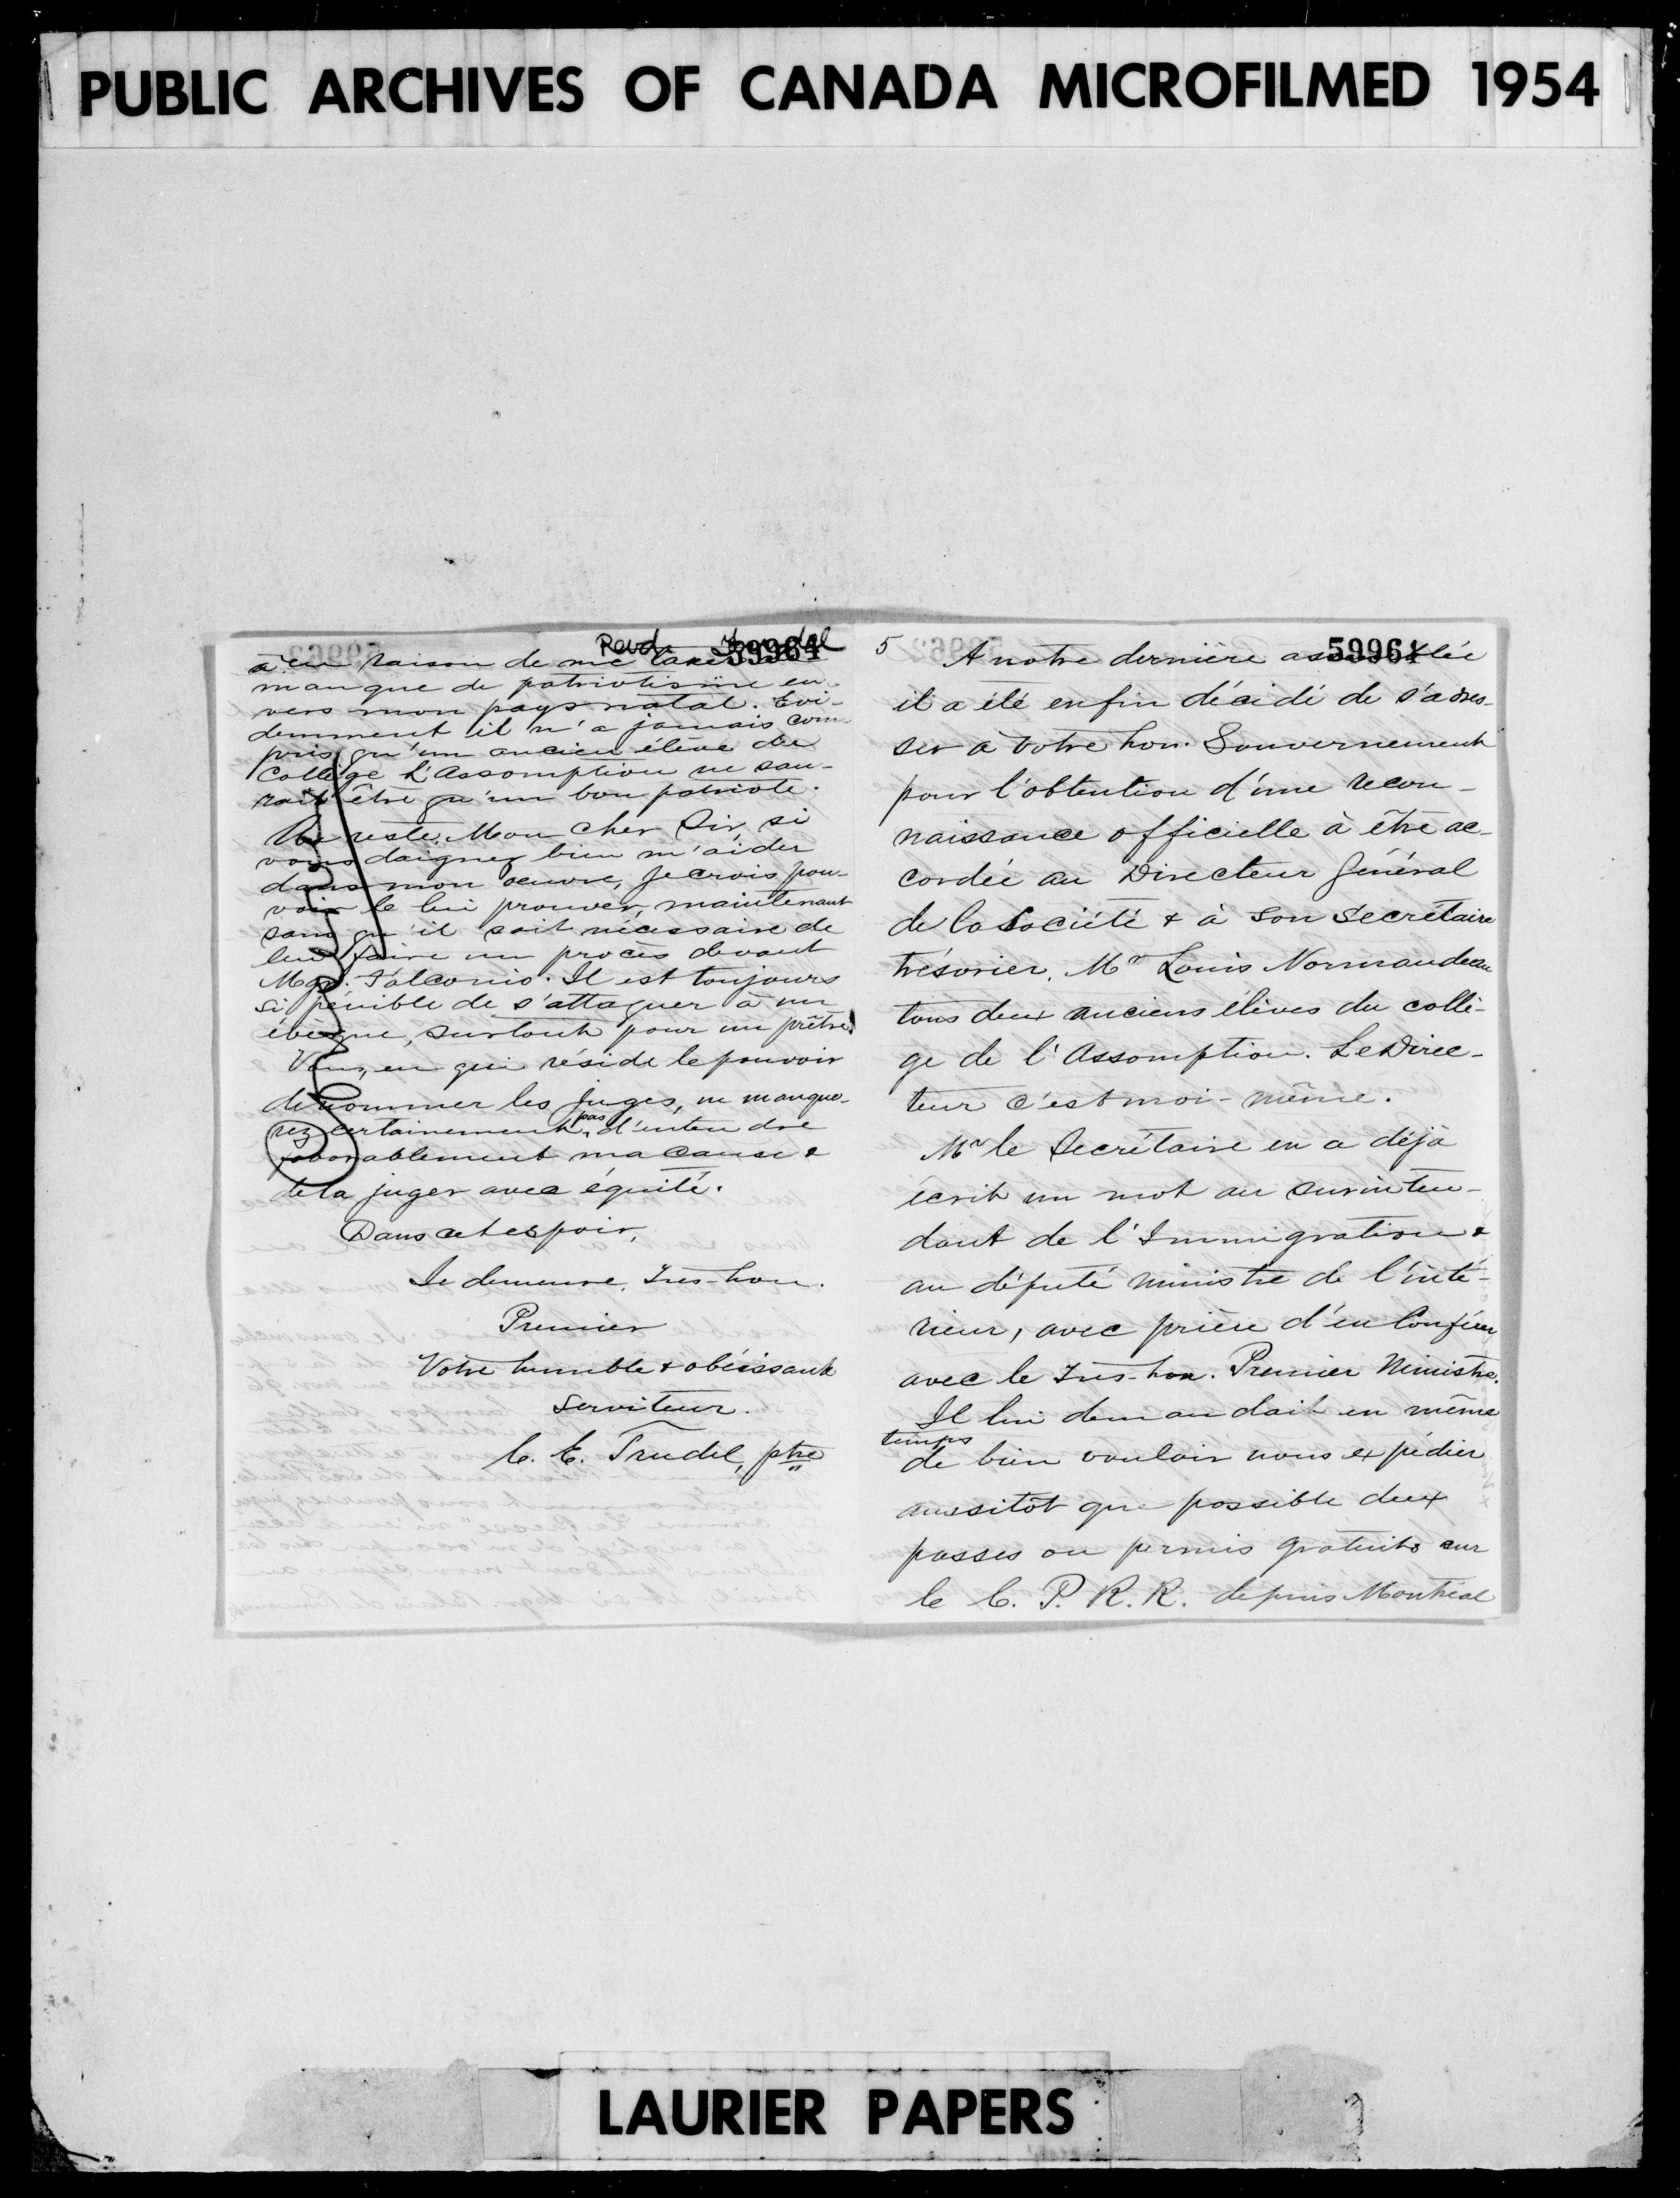 PUBLIC ARCHIVES OF CANADA MICROFILMED 1954
Revd Trudel
59964
a eu raison de me taxer de
manque de patriotisme en-
vers mon pays natal. Evi-
demment il n'a jamais com-
pris qu'un ancien élève du
Collège L'Assomption ne sau-
rait être qu'un bon patriote.
Du reste, Mon cher Sir, si
vous daignez bien m'aider
dans mon oeuvre, je crois pou-
voir le lui prouver, maintenant
sans qu'il soit nécessaire de
lui faire un procès devant
Mgr. Falconio. Il est toujours
si pénible de s'attaquer à un
évêque, surtout pour un prêtre!
Vous, en qui réside le pouvoir
de nommer les juges, ne manque-
rez certainement pas d'entendre
favorablement ma cause &
de la juger avec équité.
Dans cet espoir,
Je demeure, Très-hon.
Premier
Votre humble & obéissant
Serviteur.
C. E. Trudel, ptre
5
59961
A notre dernière assemblée
il a été enfin décidé de s'adres-
ser à votre hon. Gouvernement
pour l'obtention d'une recon-
naissance officielle à être ac-
cordée au Directeur Général
de la Société & à son Secrétaire
trésorier, Mr Louis Normandeau
tous deux anciens élèves du collè-
ge de l'Assomption. Le Direc-
teur c'est moi-même.
Mr le Secrétaire en a déjà
écrit un mot au surinten-
dant de l'Immigration &
au député ministre de l'inté-
rieur, avec prière d'en conférer
avec le Très-hon. Premier Ministre.
Il lui demandait en même
temps
de bien vouloir nous expédier
aussitôt que possible deux
passes ou permis gratuits sur
le C. P. R. R. depuis Montréal
LAURIER PAPERS